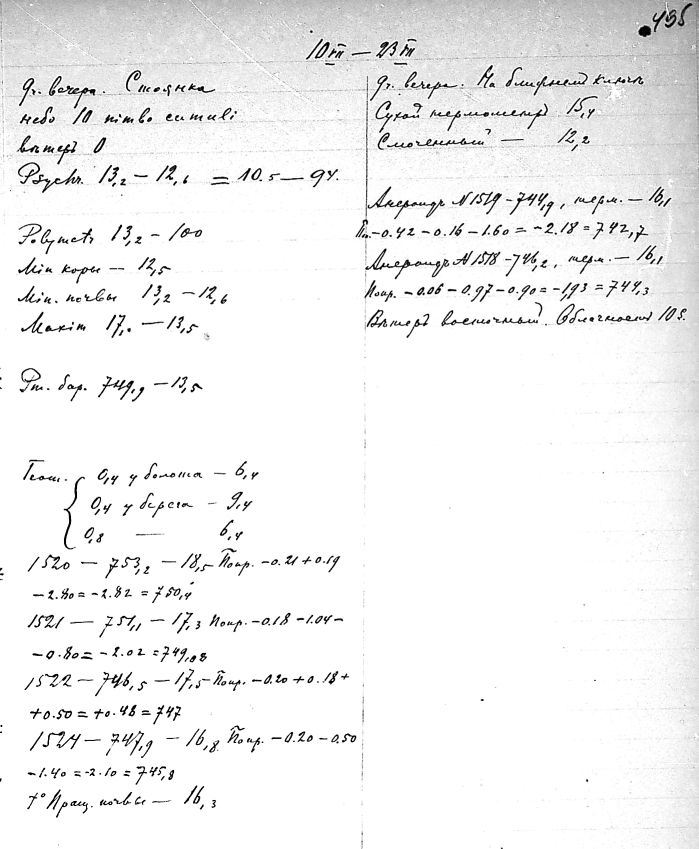 495
10 VII — 23 VII
9 ч. вечера. Стоянка
небо 10 nimbo cumuli
вѣтеръ 0
Psychr. 13,2 — 12,6 = 10.5 — 94.
Polymetr 13,2 — 100
Min коры — 12,5
Min. почвы 13,2 — 12,6
Maxim 17,0 — 13,5
Рт. бар. 749,9 — 13,5
Геот. 0,4 у болота — 6,4
0,4 у берега — 9,4
0,8 — 6,4
1520 — 753,2 — 18,5 Попр. -0.21 + 0.19
-2.80 = -2.82 = 750,4
1521 — 751,1 — 17,3 Попр. -0.18 -1.04 -
-0.80 = -2.02 = 749,08
1522 — 746,5 — 17,5 Попр. -0.20 + 0.18 +
+0.50 = +0.48 = 747
1524 — 747,9 — 16,8 Попр. -0.20 - 0.50
-1.40 = -2.10 = 745,8
t° Пращ. почвы — 16,3
9 ч. вечера. На ближнем ключѣ
Сухой термометръ 15,4
Смоченный — 12,2
Анероидъ N 1519 - 744,9, терм. — 16,1
Поп. -0.42 - 0.16 - 1.60 = -2.18 = 742,7
Анероидъ N 1518 - 746,2, терм. — 16,1
Попр. -0.06 - 0.97 - 0.90 = -1,93 = 744,3
Вѣтеръ восточный. Облачность 10 S.